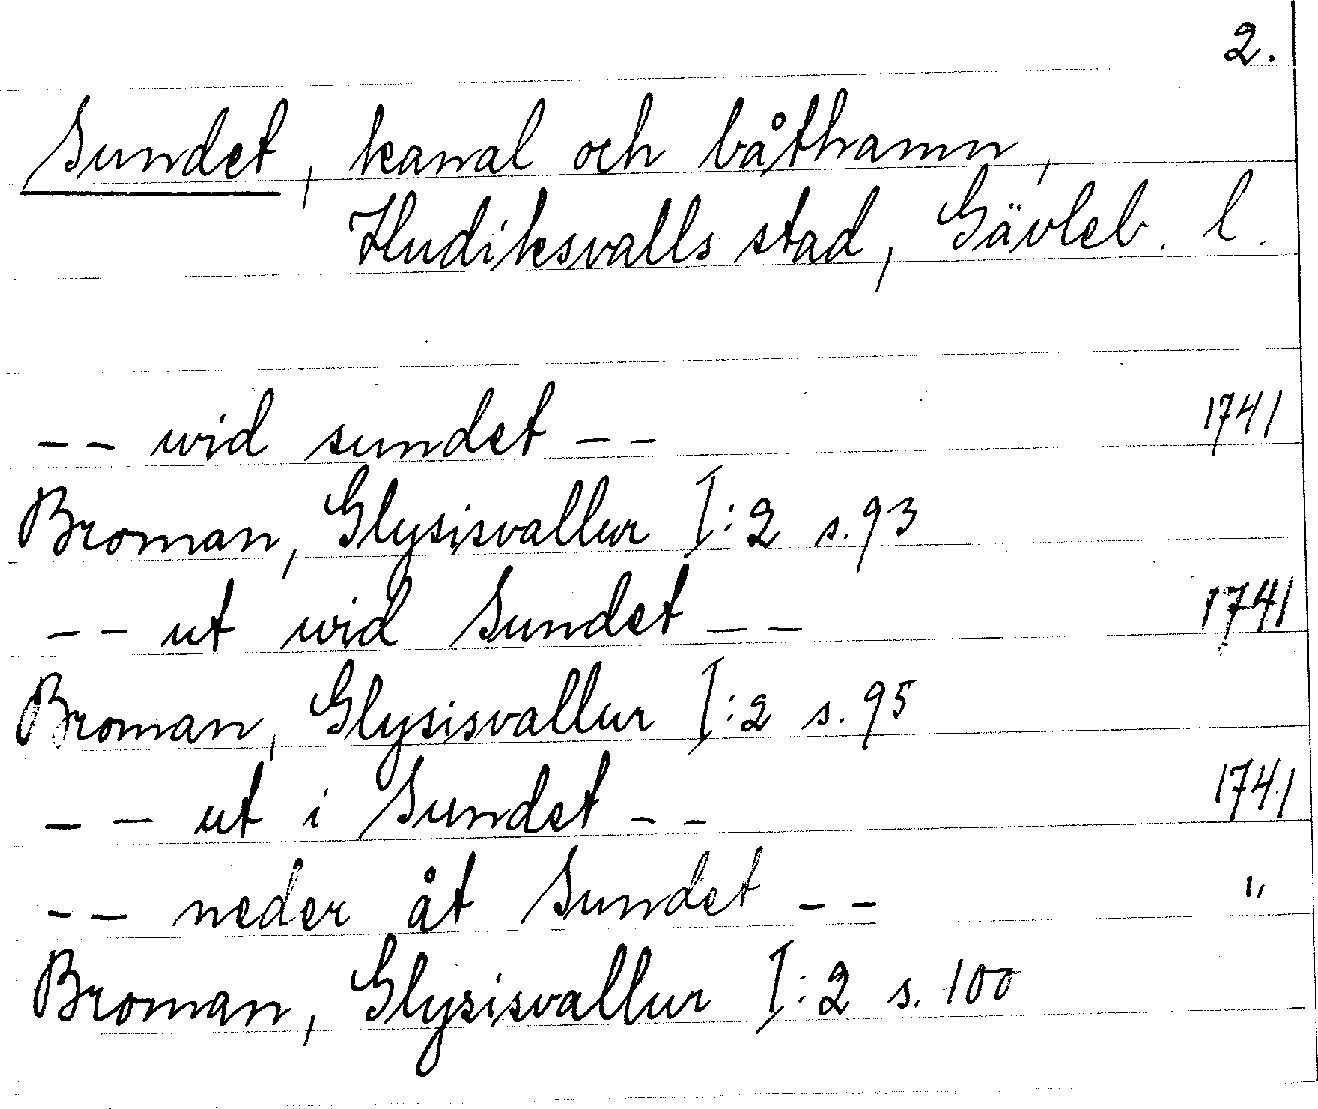 2.
Sundet, kanal och båthamn,
Hudiksvalls stad, Gävleb. l.
-- wid sundet -- 1741
Broman, Glysisvallur I:2 s. 93
-- ut wid Sundet -- 1741
Broman, Glysisvallur I:2 s. 95
-- ut i Sundet -- 1741
-- neder åt Sundet -- "
Broman, Glysisvallur I:2 s. 100